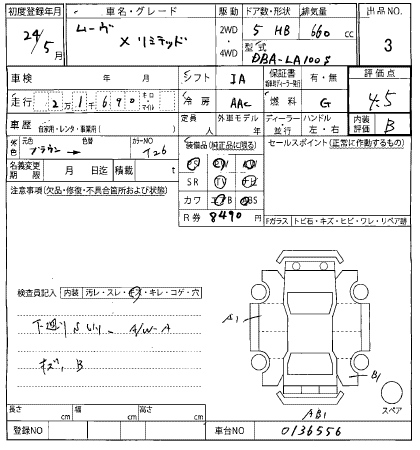 初度登録年月 車名・グレード 駆動 ドア数・形状 排気量 出品NO.
24/5月 ムーヴ X リミテッド 2WD・4WD 5 HB 660 cc 3
型式 DBA-LA100S
車検 年 月 シフト IA 保証書 有・無 評価点
走行 2万1千690 キロ・マイル 冷房 AAC 燃料 G 4.5
車歴 自家用・レンタ・事業用( ) 定員 人 外車モデル 年 ディーラー・並行 ハンドル 左・右 内装評価 B
外色 元色 ブラウン → 色替 カラーNO T26 装備品(純正品に限る) セールスポイント(正常に作動するもの)
名義変更期限 月 日迄 積載 t SR TV
注意事項(欠品・修復・不具合箇所および状態) カワ
R券 8490 円
Fガラス トビ石・キズ・ヒビ・ワレ・リペア跡
検査員記入 内装 汚レ・スレ・キズ・キレ・コゲ・穴
A/W-A
キズ、B
A1
B1
AB1
スペア
長さ cm 幅 cm 高さ cm
登録NO 車台NO 0136556